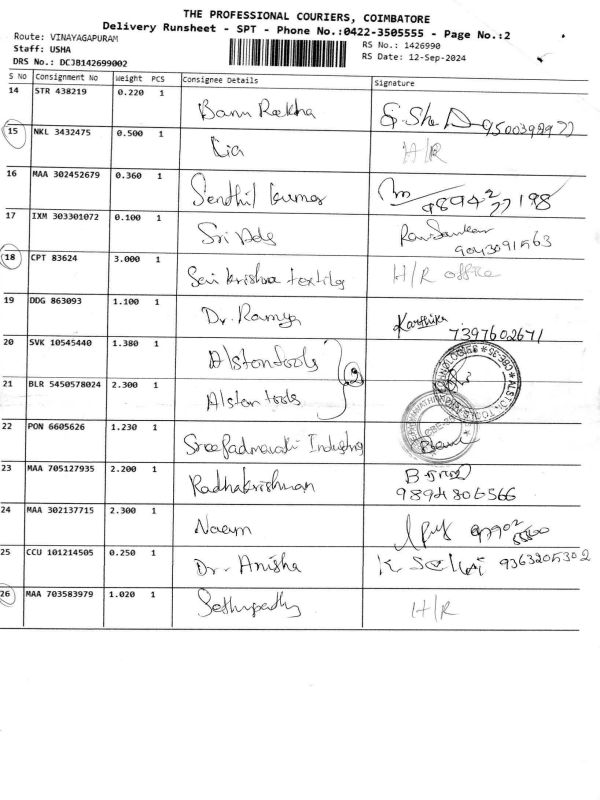 THE PROFESSIONAL COURIERS, COIMBATORE
Delivery Runsheet - SPT - Phone No.:0422-3505555 - Page No.:2
Route: VINAYAGAPURAM
Staff: USHA
DRS No.: DCJB142699002
RS No.: 1426990
RS Date: 12-Sep-2024
S No Consignment No Weight PCS Consignee Details Signature
14 STR 438219 0.220 1 Banu Reekha
15 NKL 3432475 0.500 1 Lia H/R
16 MAA 302452679 0.360 1 Sendhil kumar
17 IXM 303301072 0.100 1 Sri Ads Ravi Sankar
9043091563
18 CPT 83624 3.000 1 Sri krishna textiles H/R office
19 DDG 863093 1.100 1 Dr. Ramya Karthika
7397602671
20 SVK 10545440 1.380 1 Alston tools
2
21 BLR 5450578024 2.300 1 Alston tools
22 PON 6605626 1.230 1 Sree Padmavati Industries
23 MAA 705127935 2.200 1 Radhakrishnan
9894806566
24 MAA 302137715 2.300 1 Naeem
25 CCU 101214505 0.250 1 Dr. Anisha K Selvi 9363205302
26 MAA 703583979 1.020 1 Sethupathy H/R